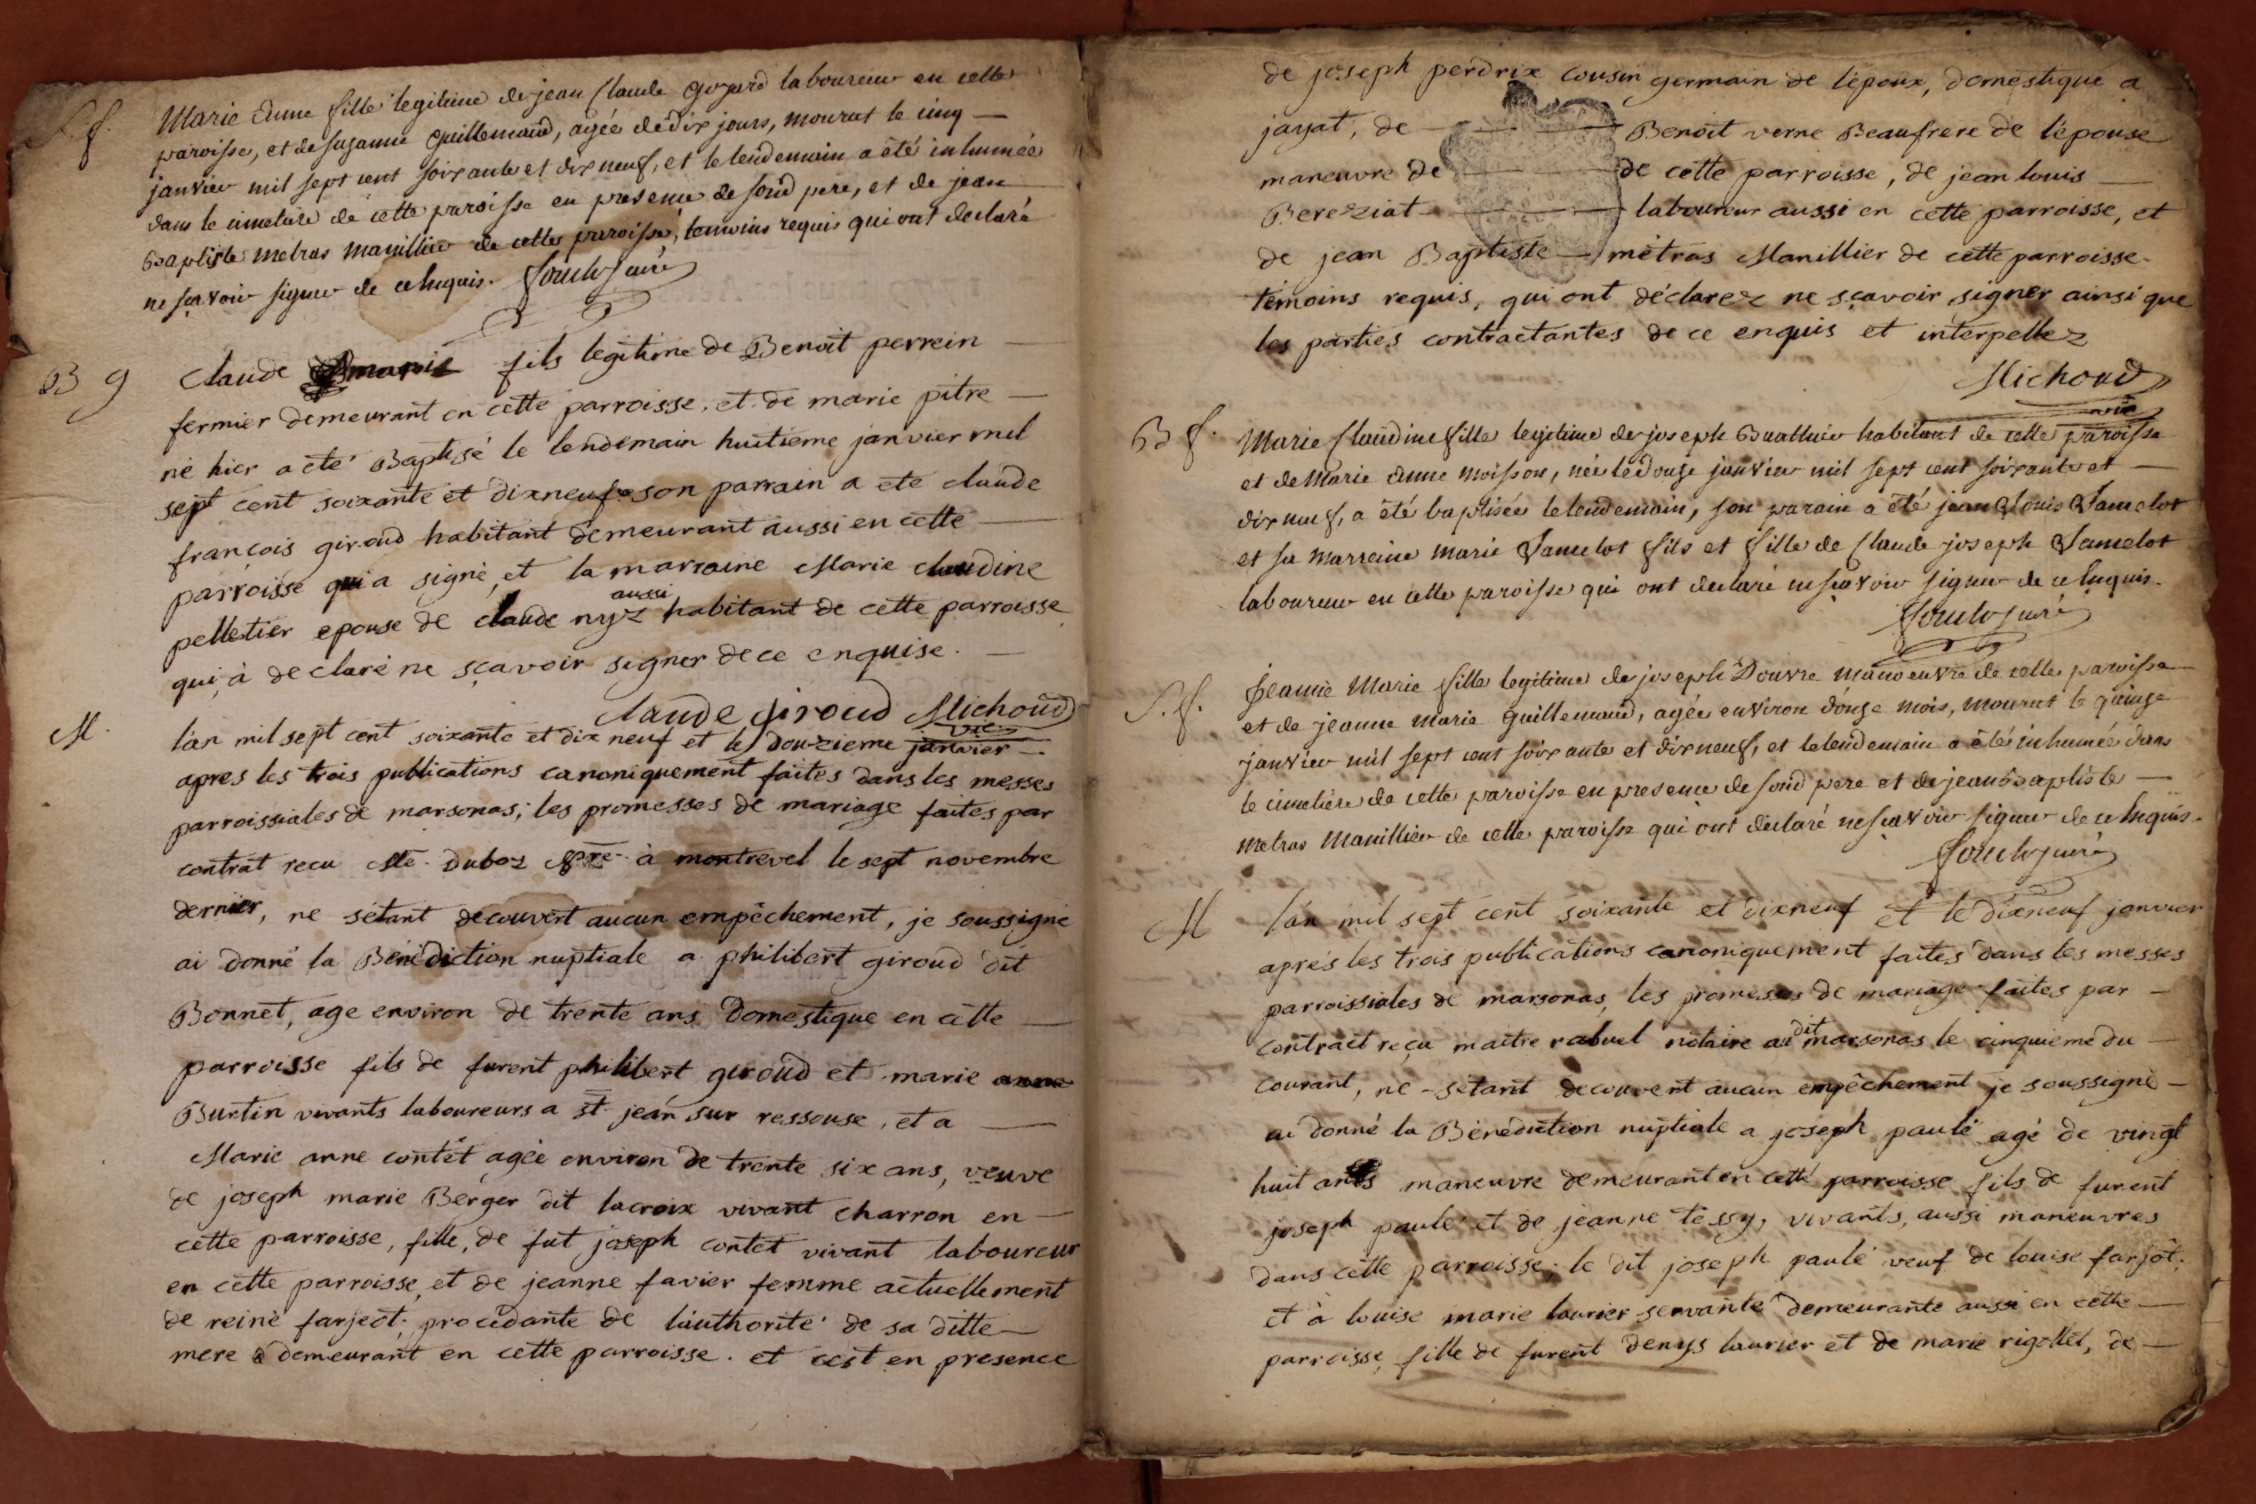 S. f.
Marie Anne fille legitime de jean Claude Goyard laboureur en cette
paroisse, et de Suzanne Guillemaud, agée de dix jours, mourut le cinq
janvier mil sept cent soixante et dix neuf, et le lendemain a été inhumée
dans le cimetiere de cette paroisse en presence de sond pere, et de jean
Baptiste metras manillier de cette paroisse, temoins requis qui ont declaré
ne sçavoir signer de ce Enquis.
B g
Claude fils legitime de Benoit perrein
fermier demeurant en cette parroisse, et de marie pitre
né hier a été Baptisé le lendemain huitieme janvier mil
sept cent soixante et dixneuf son parrain a été claude
françois giroud habitant demeurant aussi en cette
parroisse qui a signé, et la marraine Marie claudine
pelletier epouse de claude nyz aussi habitant de cette parroisse
qui à declaré ne sçavoir signer de ce enquise.
Claude Giroud Michoud
vic
M.
l'an mil sept cent soixante et dix neuf et le douzieme janvier
apres les trois publications canoniquement faites dans les messes
parroissiales de marsonas; les promesses de mariage faites par
contrat recu Me. Duboz à montrevel le sept novembre
dernier, ne s'étant decouvert aucun empêchement, je soussigné
ai donné la Bénédiction nuptiale a philibert giroud dit
Bonnet, agé environ de trente ans Domestique en cette
parroisse fils de furent philibert giroud et marie anne
Burtin vivants laboureurs a st. jean sur ressouse, et a
Marie anne contet agée environ de trente six ans, veuve
de joseph marie Berger dit lacroix vivant charron en
cette parroisse, fille, de fut joseph contet vivant laboureur
en cette parroisse, et de jeanne favier femme actuellement
de reiné farjeot; procédante de l'authorité de sa ditte
mere demeurant en cette parroisse. et c'est en presence
de joseph perdrix cousin germain de l'epoux, domestique a
jayat, de Benoit verne Beaufrere de l'epouse
maneuvre de de cette parroisse, de jean louis
Bereziat laboureur aussi en cette parroisse, et
de jean Baptiste métras Manillier de cette parroisse.
témoins requis, qui ont déclarez ne sçavoir signer ainsi que
les parties contractantes de ce enquis et interpellez
Michoud
vic
B f.
Marie Claudine fille legitime de joseph Buathier habitant de cette paroisse
et de Marie Anne moisson, née le douze janvier mil sept cent soixante et
dix neuf, a été baptisée le lendemain, son parain a été jean Louis Jamelot
et sa marraine marie Jamelot fils et fille de Claude joseph Jamelot
laboureur en cette paroisse qui ont declaré ne sçavoir signer de ce Enquis.
S. f.
Jeanne Marie fille legitime de joseph Douvre manoeuvre de cette paroisse
et de jeanne marie Guillemaud, agée environ douze mois, mourut le quinze
janvier mil sept cent soixante et dix neuf, et le lendemain a été inhumée dans
le cimetiere de cette paroisse en presence de sond pere et de jean Baptiste
metras Manillier de cette paroisse qui ont declaré ne sçavoir signer de ce Enquis.
M
l'an mil sept cent soixante et dixneuf et le dixneuf janvier
aprés les trois publications canoniquement faites dans les messes
parroissiales de marsonas, les promesses de mariage faites par
contract reçu maitre rabuel notaire au dit marsonas le cinquieme du
courant, ne s'étant decouvert aucun empêchement je soussigné
ai donné la Bénédiction nuptiale a joseph paulé agé de vingt
huit ans maneuvre demeurant en cette parroisse fils de furent
joseph paulé et de jeanne tessy, vivants, aussi maneuvres
dans cette parroisse; le dit joseph paulé veuf de louise farjôt;
et à louise marie laurier servante demeurante aussi en cette
parroisse, fille de furent denys laurier et de marie rigollet, de